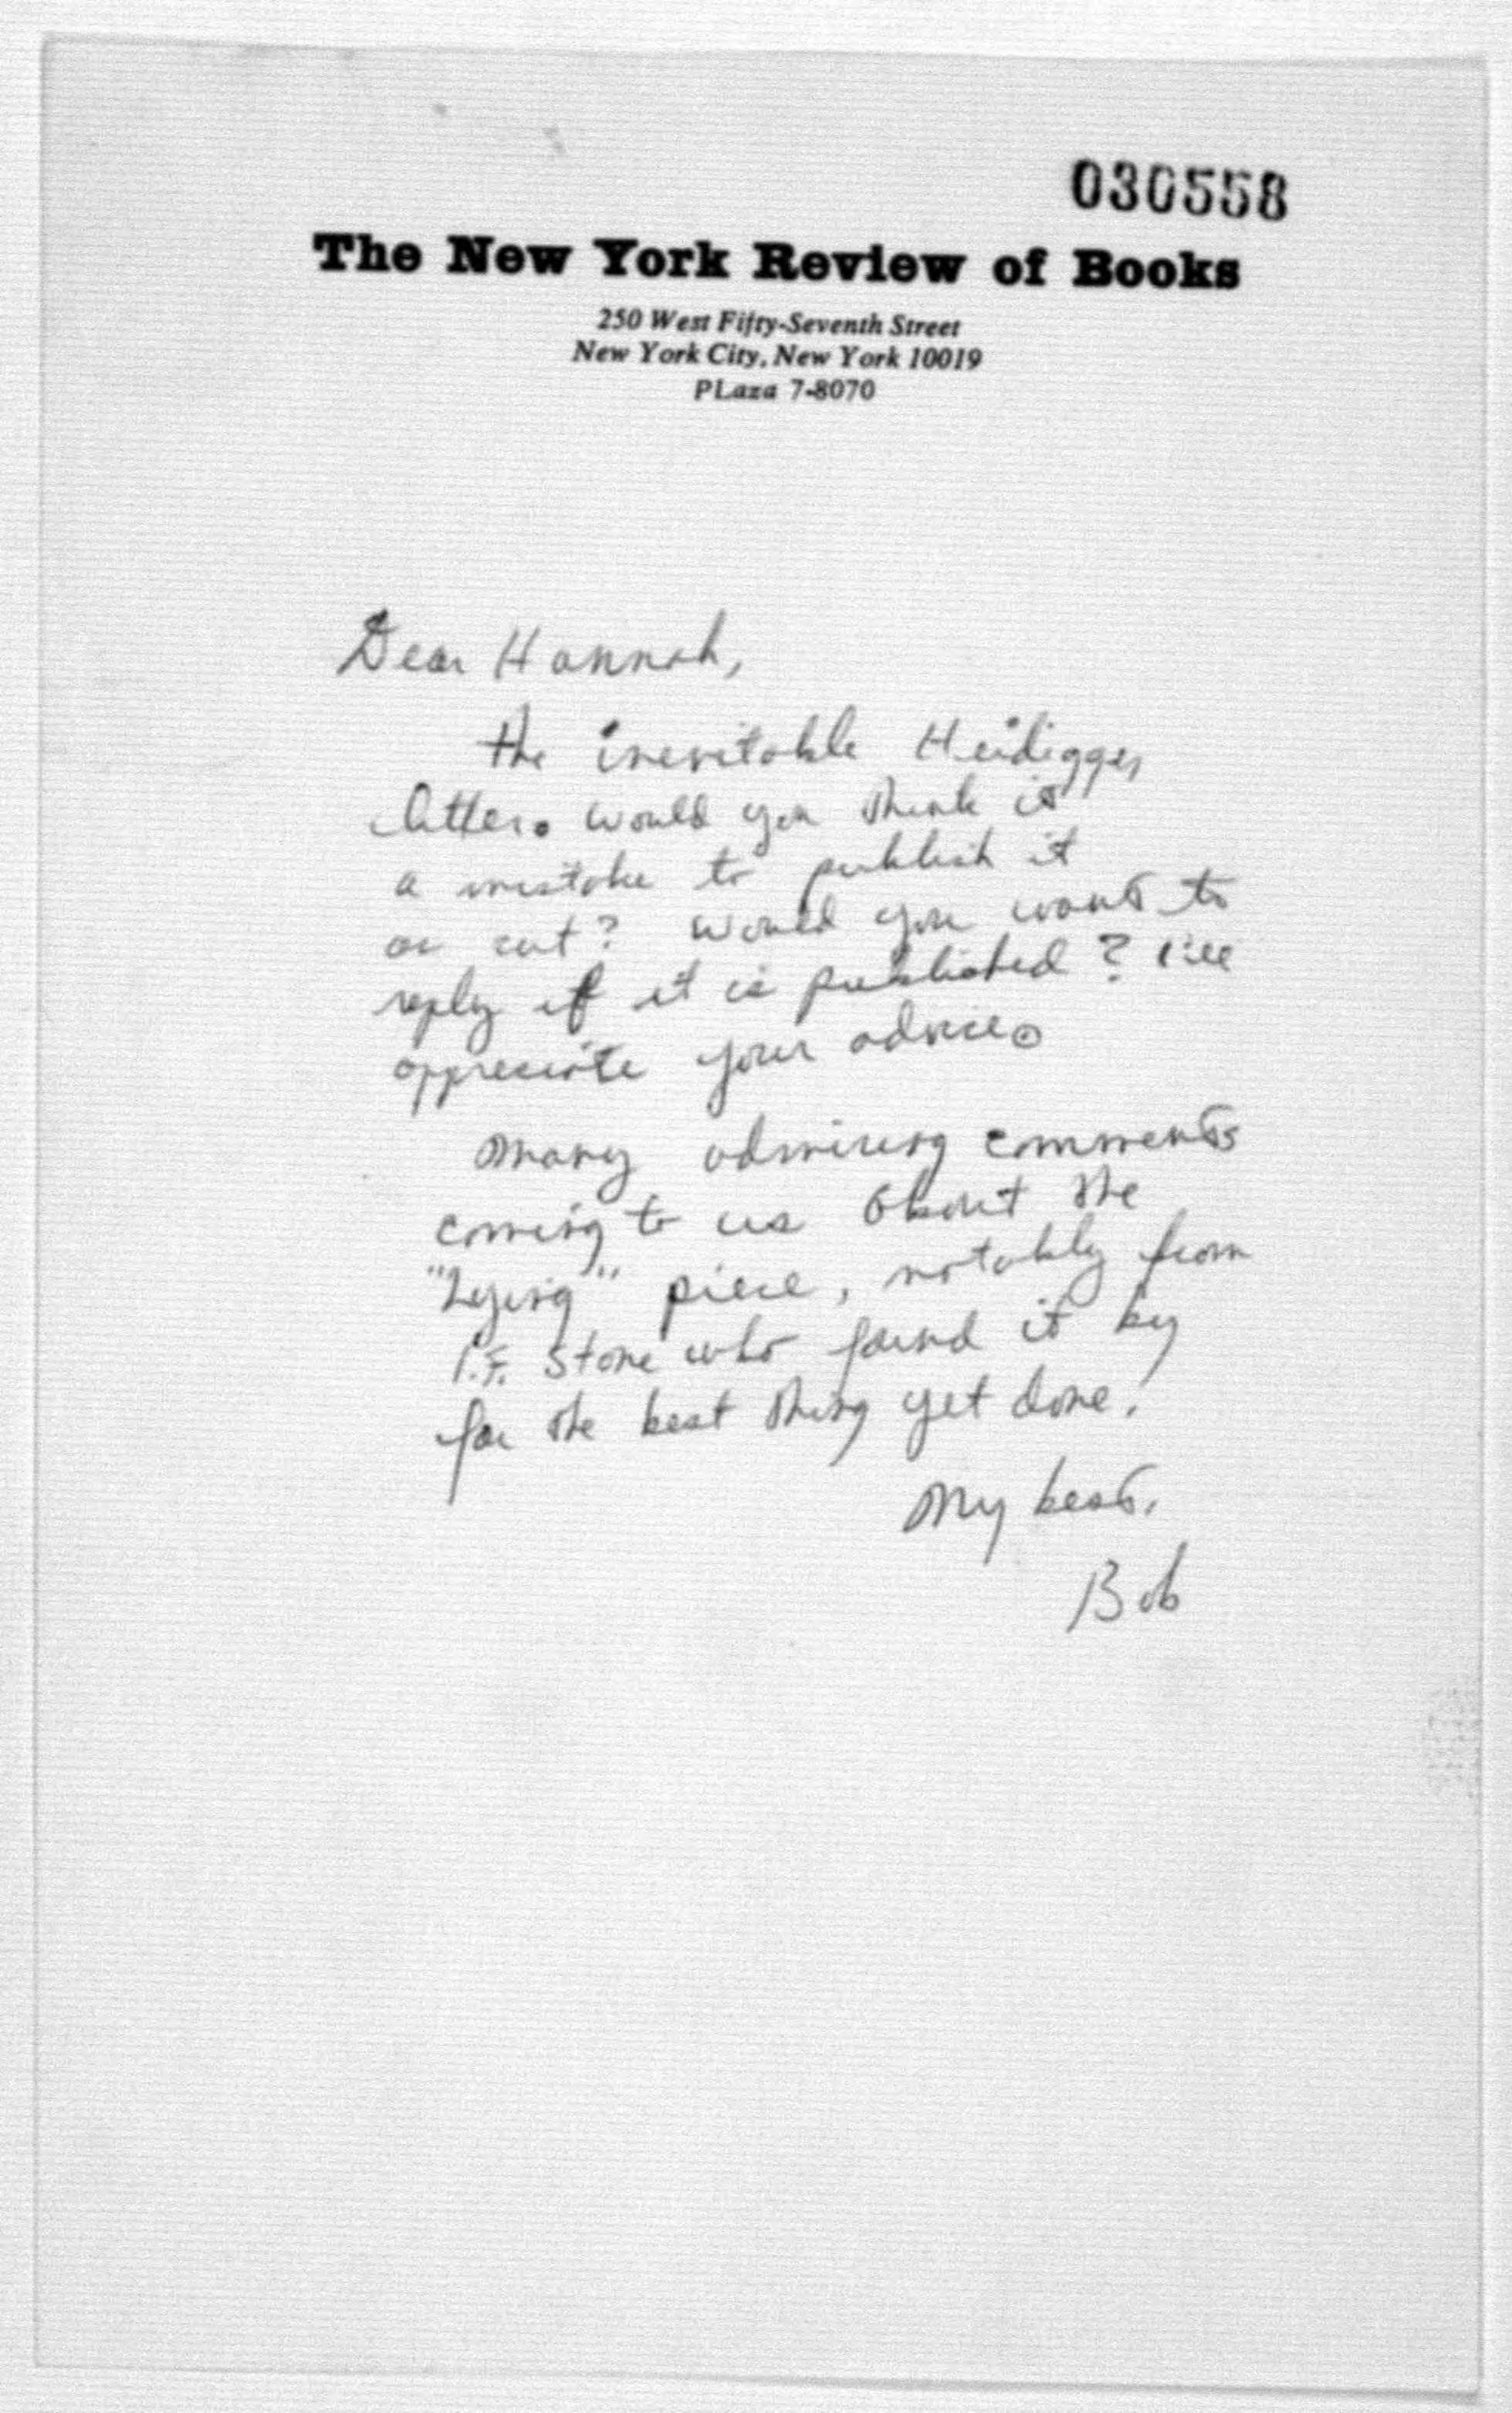 030558
The New York Review of Books
250 West Fifty-Seventh Street
New York City, New York 10019
PLaza 7-8070
Dear Hannah,
the inevitable Heidigger
letter. Would you think it
a mistake to publish it
or cut? Would you want to
reply if it is published? I'll
appreciate your advice.
Many admiring comments
coming to us about the
"Lying" piece, notably from
I.F. Stone who found it by
far the best thing yet done.
My best,
Bob